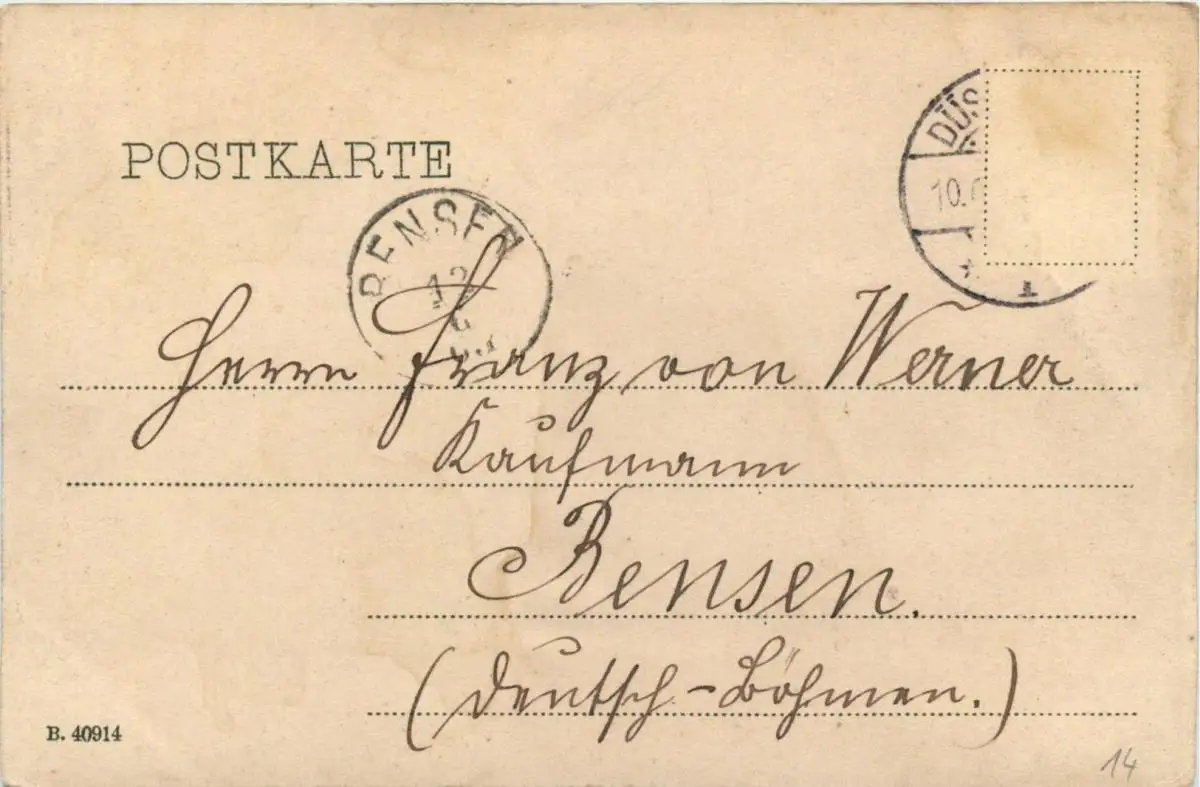 POSTKARTE
DÜS
10.
1
BENSEN
12
Herrn Franz von Werner
Kaufmann
Bensen.
(Deutsch-Böhmen.)
B. 40914
14